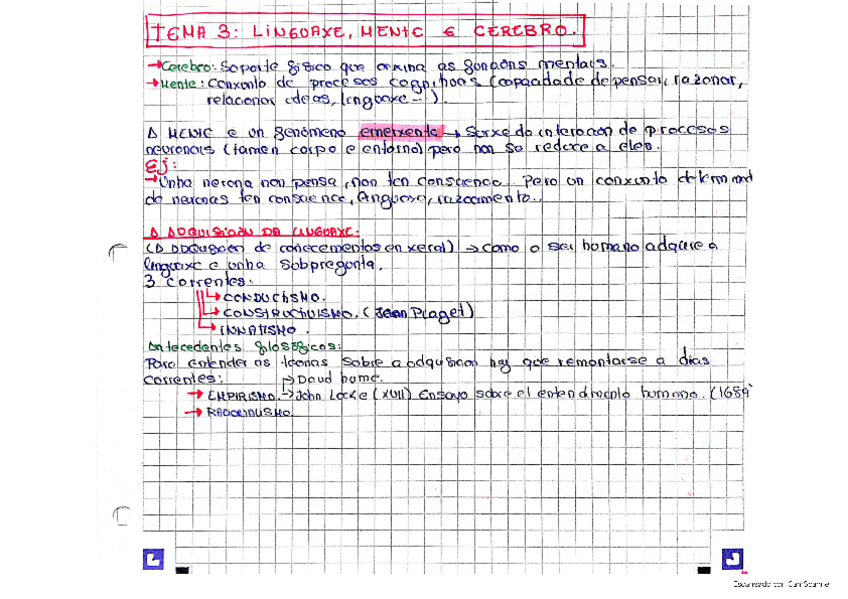 TEMA 3: LINGUAXE, MENTE E CEREBRO.
→Cerebro: Soporte físico que orixina as funcións mentais.
→Mente: Conxunto de procesos cognitivos (capacidade de pensar, razonar,
relacionar ideas, linguaxe...).
A MENTE e un fenómeno emerxente → Surxe da interacción de procesos
neuronais (tamén corpo e entorno) pero non se reduce a eles.
Ej:
→Unha nerona non pensa, non ten conscience. Pero un conxunto
de neuronas ten conscience, linguaxe, razoamento..
A ADQUISICIÓN DA LINGUAXE:
(A adquisición de coñecementos en xeral) → como o ser humano adquire a
linguaxe e unha sobpregunta.
3 correntes:
→CONDUCTISMO.
→CONSTRUCTIVISMO. (Jean Piaget)
→INNATISMO.
Antecedentes filosóficos:
Para entender as teorias sobre a adquisicion hay que remontarse a dúas
correntes: →David hume.
→ EMPIRISMO. →John Locke (XVII) Ensayo sobre el entendimiento humano. (1689)
→ RACIONALISMO.
Escaneado con CamScanner